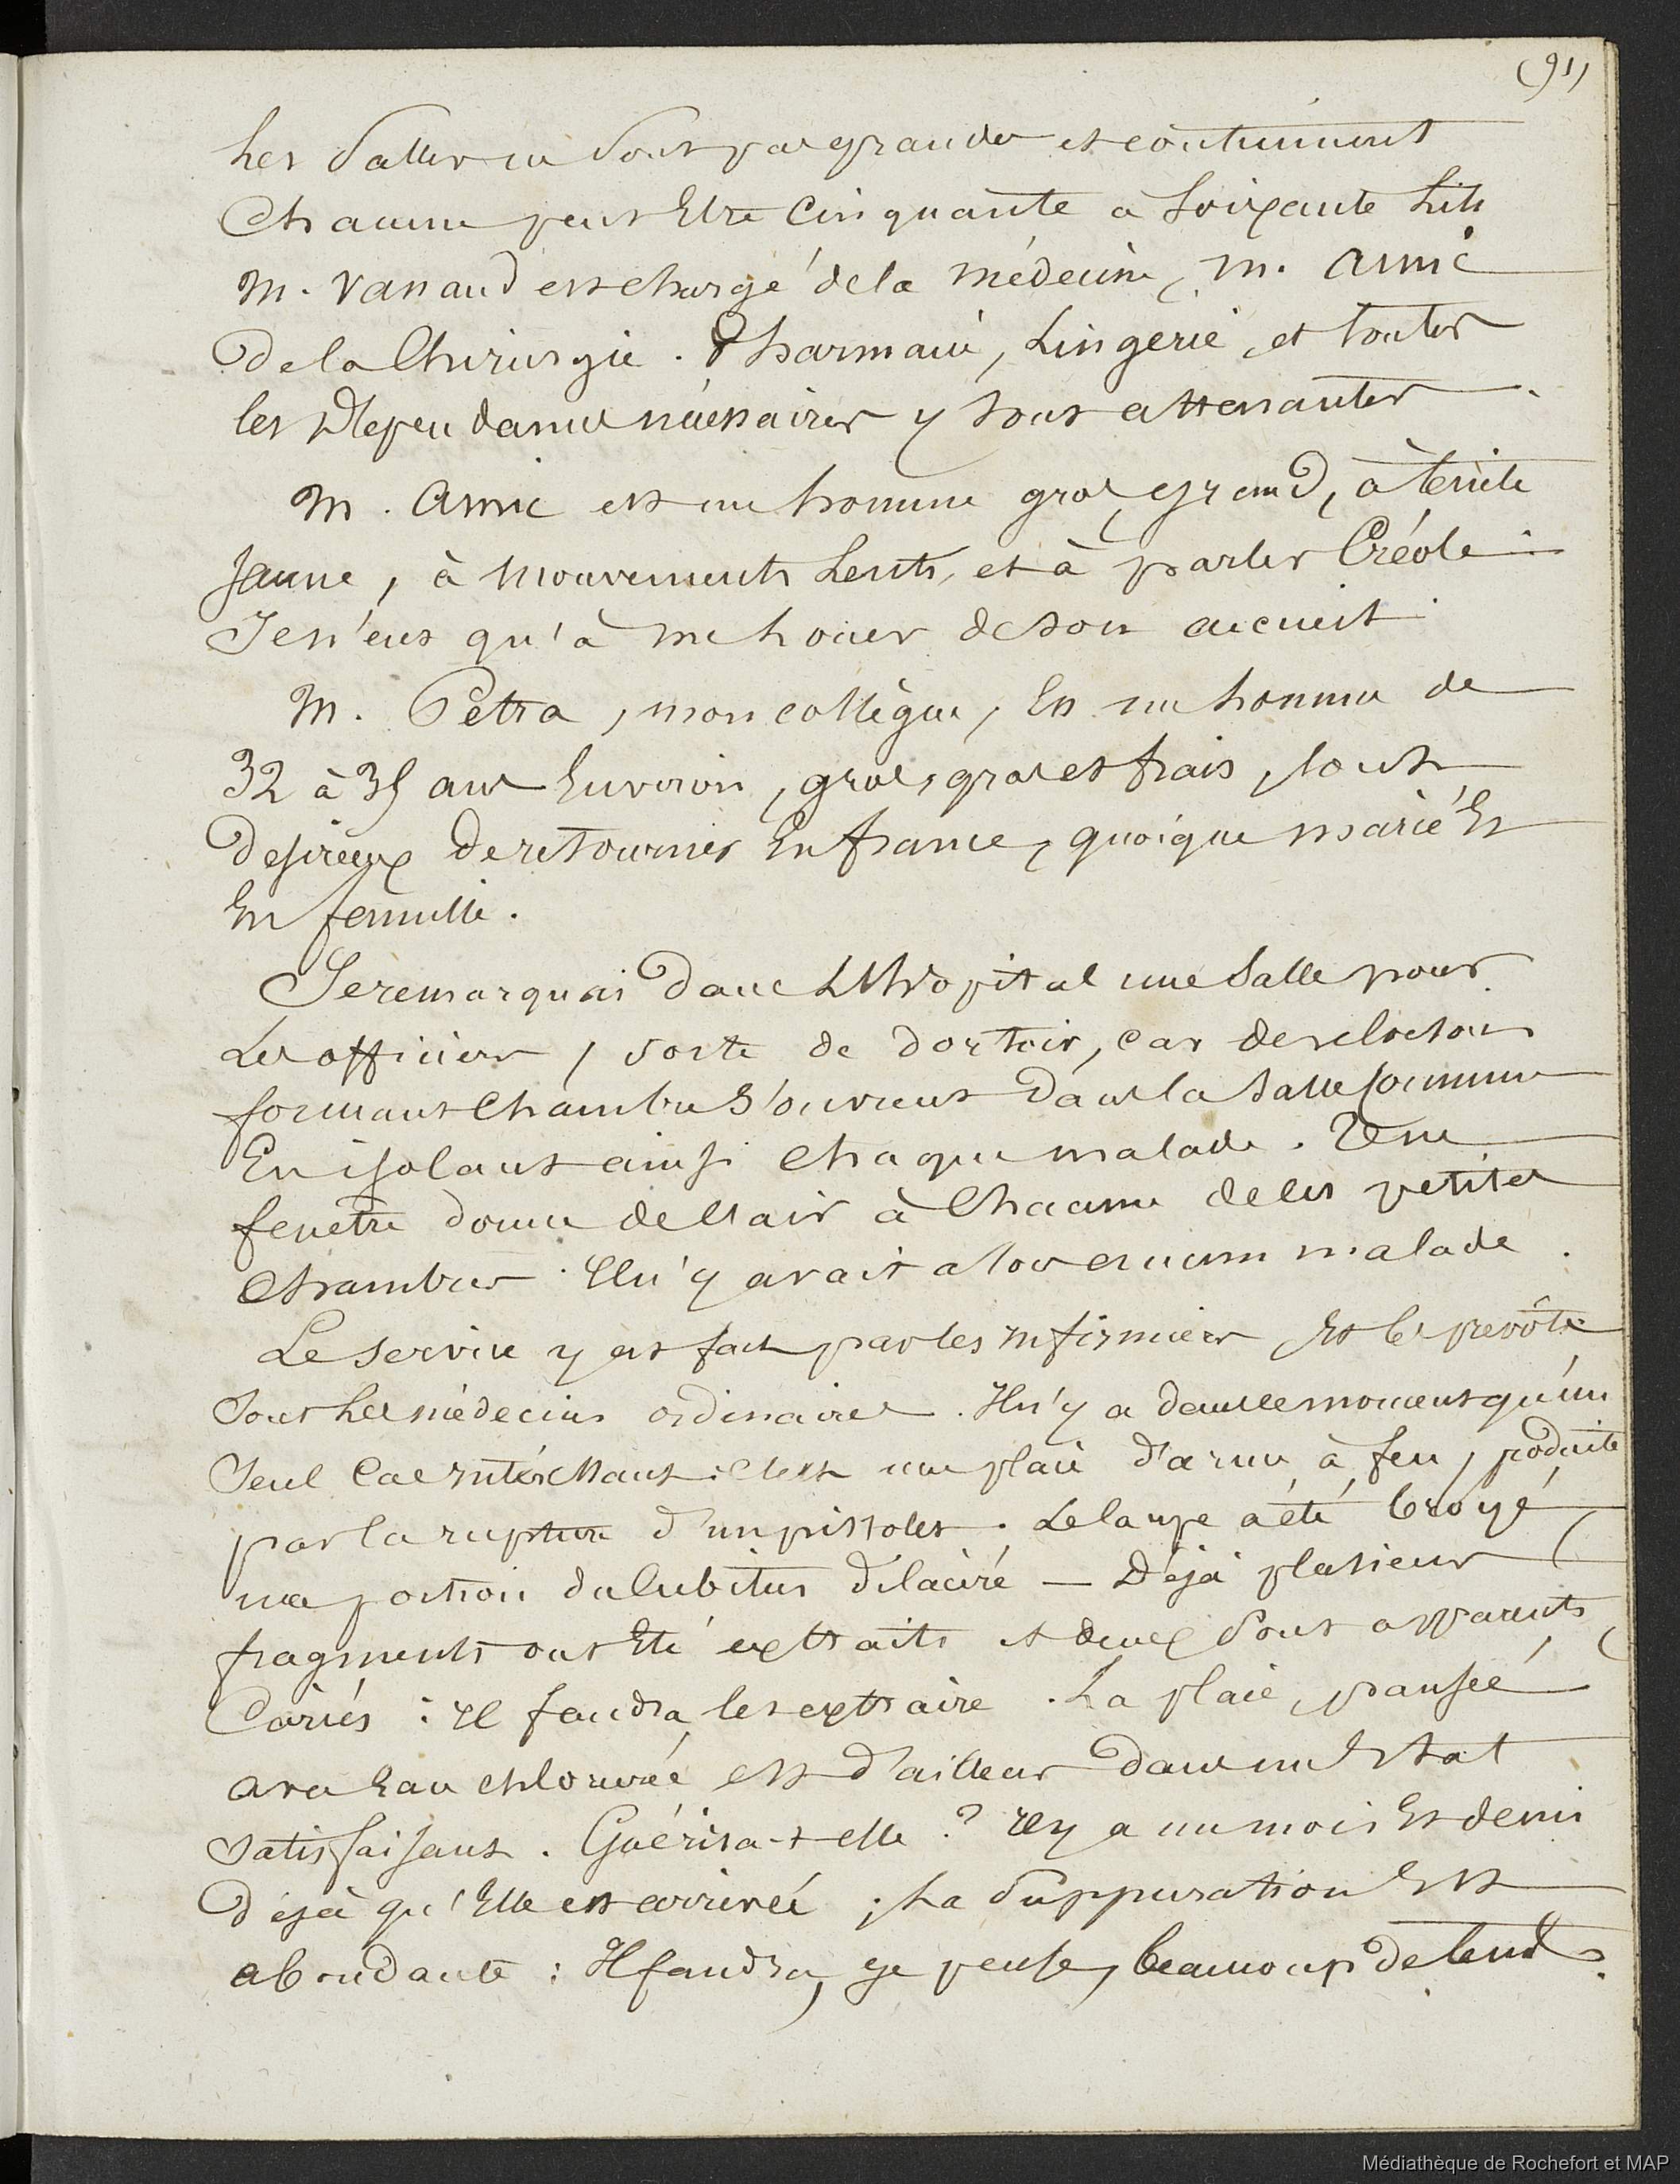 (91)
Les Salles ne sont pas grandes et contiennent
Chacune peut Etre Cinquante a soixante Lits
M. Vanaud est chargé de la médecine, M. Amic
De la Chirurgie. Pharmacie, Lingerie, et toutes
les Dépendances nécessaires y sont attenantes.
M. Amic est un homme gros, grand, à teinte
Jaune, à mouvements Lents, et à parler Créole.
Je n'eus qu'à me Louer de son accueil.
M. Pétra, mon collègue, Est un homme de
32 à 35 ans Environ, gros, gras et frais, tout
desireux De retourner En france, quoique marié Et
En famille.
Je remarquai Dans L'hopital une Salle pour
Les officiers, sorte de dortoir, car des cloisons
formant Chambre S'ouvrent Dans la Salle Commune
En isolant ainsi Chaque malade. Une
fenêtre donne de l'air à Chacune de ces petites
Chambres. Il n'y avait alors aucun malade.
Le service y est fait par les infirmiers Et les prevôts
Sous Les médecins ordinaires. Il n'y a dans ce moment qu'un
Seul Cas intéressant: C'est une plaie d'arme à feu, produite
par la rupture d'un pistolet. Le carpe a été broyé,
une portion du Cubitus dilacéré — Déjà plusieurs
fragments ont Eté extraits et deux Sont apparents,
Cariés: il faudra les extraire. La plaie, pansée
avec Eau chlorurée est d'ailleurs Dans un Etat
satisfaisant. Guérira-t-elle? Il y a un mois Et demi
Déjà qu'Elle est arrivée; La Suppuration Est
abondante: Il faudra, je pense, beaucoup de tems.
Médiathèque de Rochefort et MAP